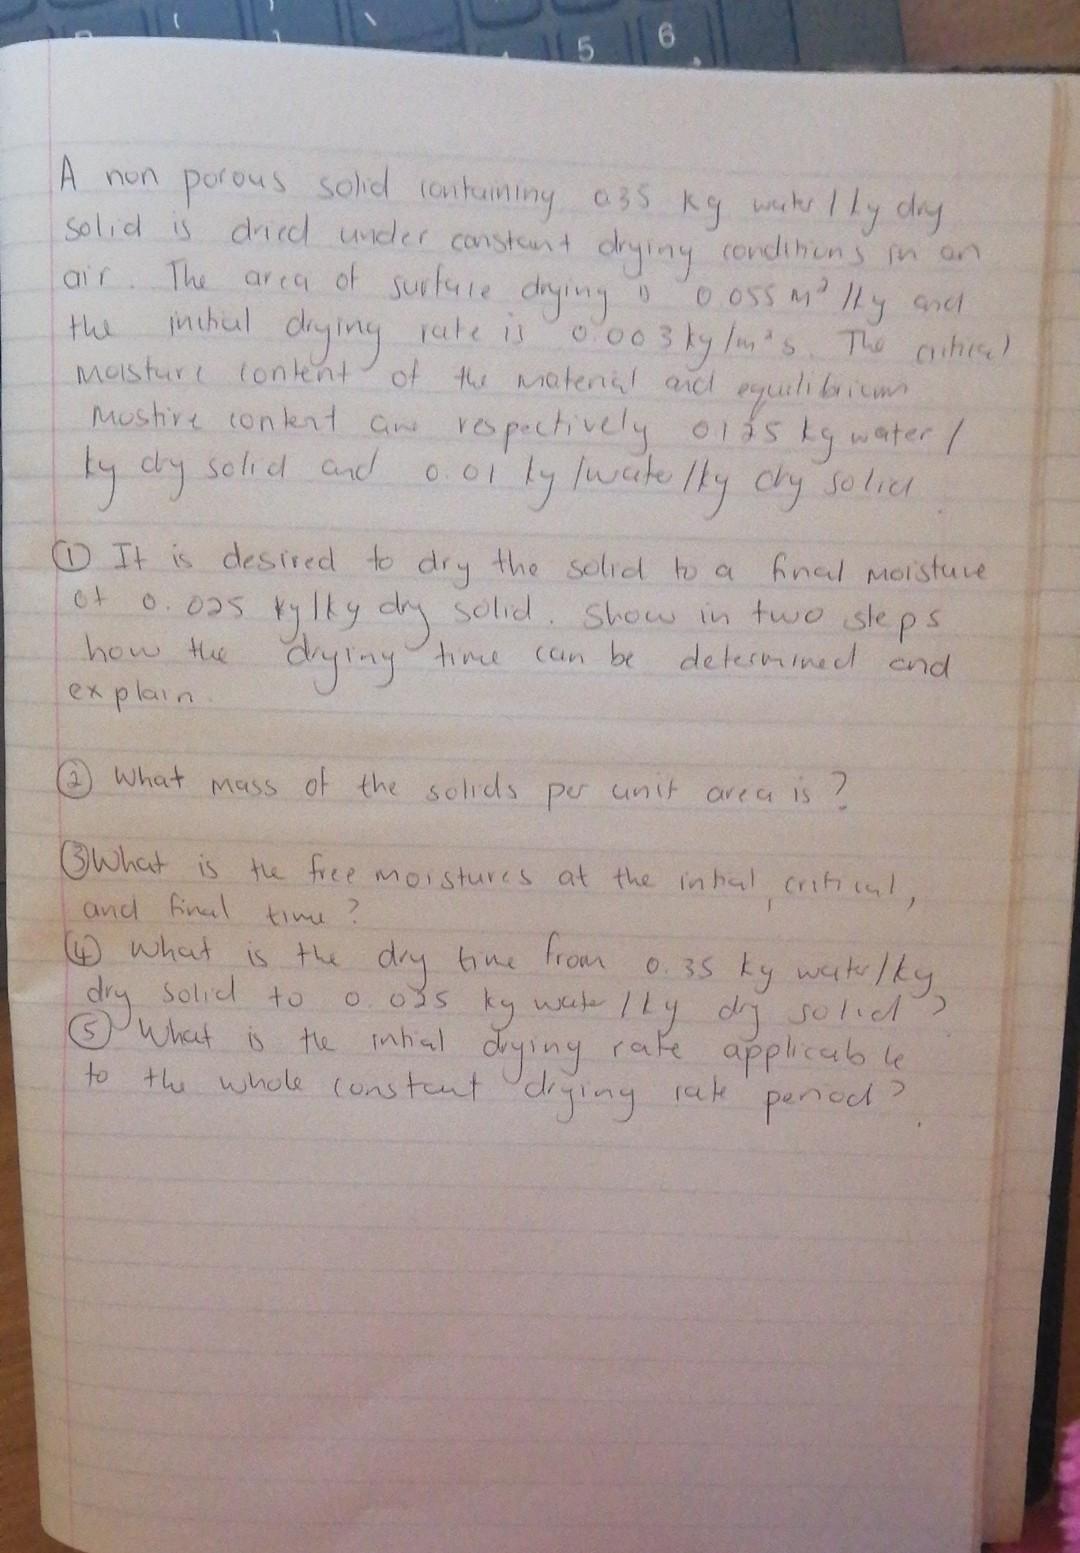 5 6
A non porous solid containing 0.35 kg water / kg dry
solid is dried under constant drying conditions in an
air. The area of surface drying is 0.055 m² /kg and
the initial drying rate is 0.003 kg/m²s. The critical
moisture content of the material and equilibrium
mostire content are respectively 0.125 kg water /
kg dry solid and 0.01 kg /water/kg dry solid
① It is desired to dry the solid to a final moisture
of 0.025 kg/kg dry solid. Show in two steps
how the drying time can be determined and
explain.
② What mass of the solids per unit area is ?
③ What is the free moistures at the intial, critical,
and final time ?
④ What is the dry time from 0.35 kg water/kg
dry solid to 0.025 kg water / kg dry solid ?
⑤ What is the intial drying rate applicable
to the whole constant drying rate period ?